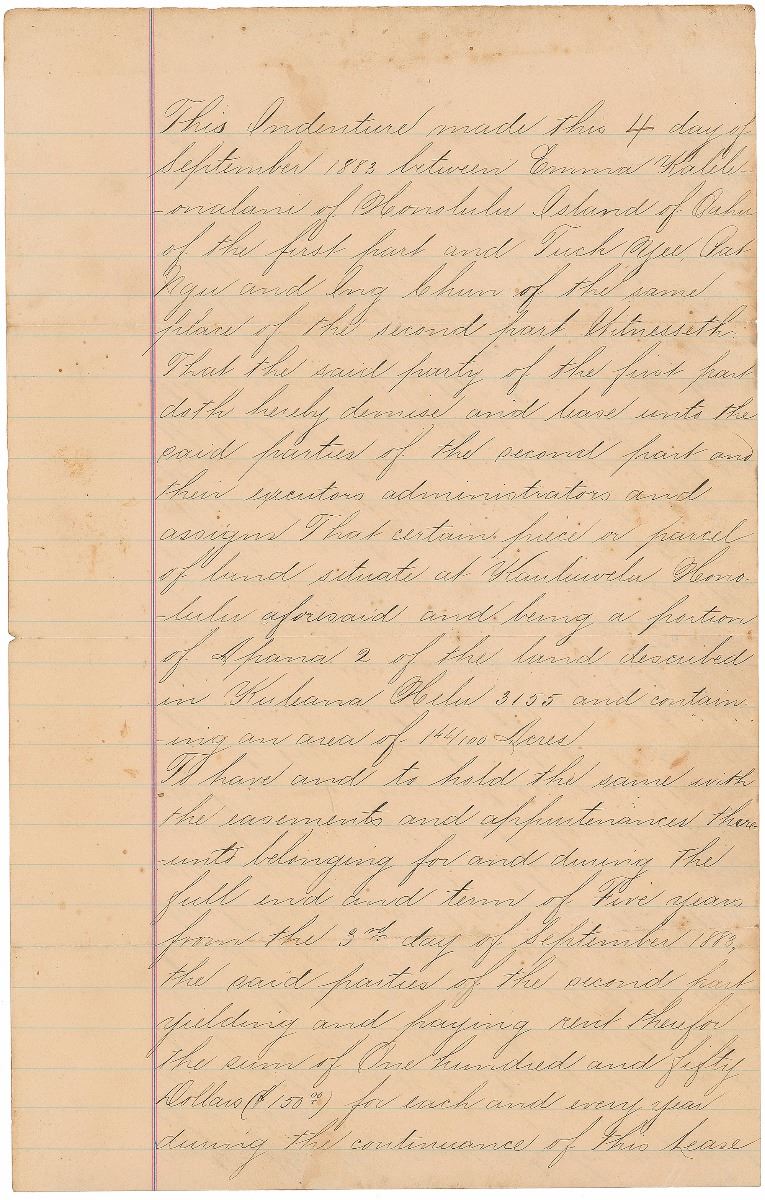 This Indenture made this 4 day of
September 1883 between Emma Kalele
-onalani of Honolulu Island of Oahu
of the first part and Tuck Yee Pat
Ngu and Ing Chun of the same
place of the second part Witnesseth.
That the said party of the first part
doth hereby demise and lease unto the
said parties of the second part and
their executors administrators and
assigns That certain piece or parcel
of land situate at Kauluwela Hono-
-lulu aforesaid and being a portion
of Apana 2 of the land described
in Kuleana Helu 3155 and contain
-ing an area of 1 44/100 Acres
To have and to hold the same with
the easements and appurtenances there
-unto belonging for and during the
full end and term of Five years
from the 3rd day of September 1883,
the said parties of the second part
yielding and paying rent therefor
the sum of One hundred and fifty
Dollars ($150 00) for each and every year
during the continuance of this Lease